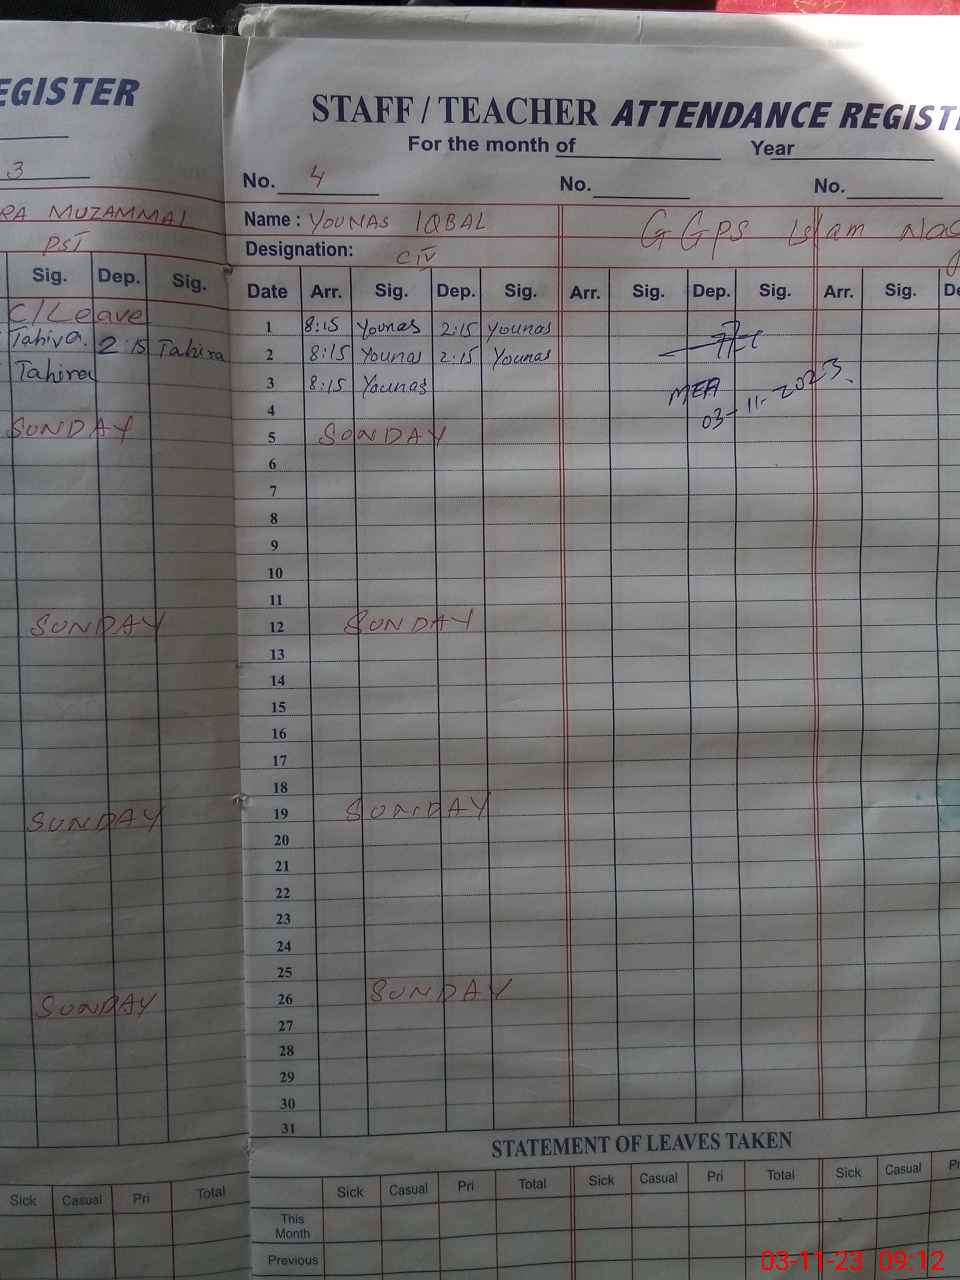 EGISTER
3
RA MUZAMMAL
PST
Sig. Dep. Sig.
C/Leave
Tahira. 2:15 Tahira
Tahira
SUNDAY
SUNDAY
SUNDAY
SUNDAY
Sick Casual Pri Total
STAFF / TEACHER ATTENDANCE REGIST
For the month of Year
No. 4 No. No.
Name : YOUNAS IQBAL GGPS Islam Nag
Designation: CIV
Date Arr. Sig. Dep. Sig. Arr. Sig. Dep. Sig. Arr. Sig. De
1 8:15 Younas 2:15 Younas
2 8:15 Younas 2:15 Younas
3 8:15 Younas MEA
4 03-11-2023.
5 SUNDAY
6
7
8
9
10
11
12 SUNDAY
13
14
15
16
17
18
19 SUNDAY
20
21
22
23
24
25
26 SUNDAY
27
28
29
30
31
STATEMENT OF LEAVES TAKEN
Sick Casual Pri Total Sick Casual Pri Total Sick Casual Pr
This Month
Previous
03-11-23 09:12